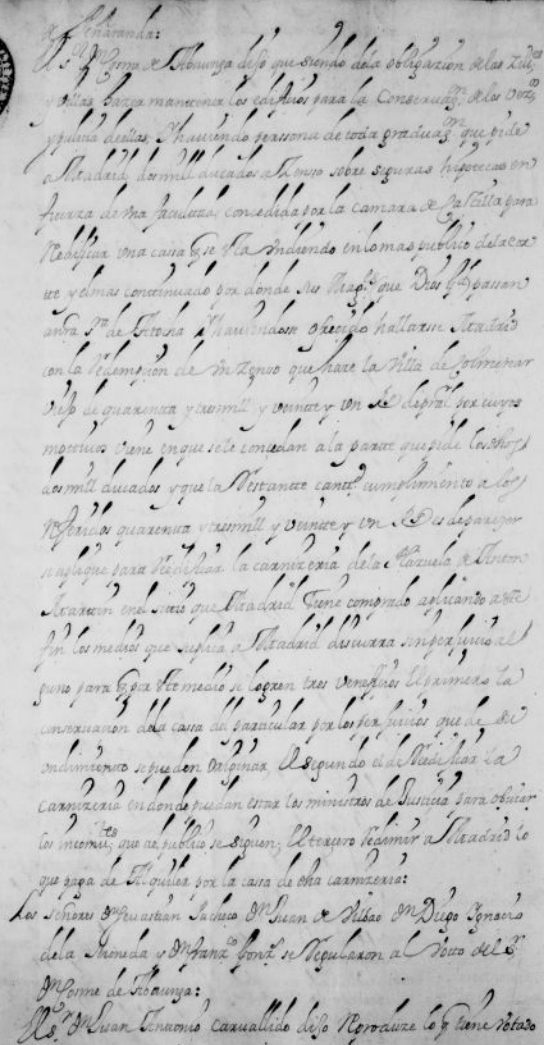 de Peñaranda:
El s.r D.n Cosme de Abaunza dijo que siendo dela obligazion delas Ziu.des
y villas hazer mantener los edificios para la Conservaz.on delos vez.os
y pulizia deellas, y haviendo perssona de toda graduaz.on que pide
a Madrid dos mill ducados a Zenso sobre seguras hipotecas en
fuerza de una facultad concedida por la camara de Castilla para
Redificar una cassa q se esta undiendo en lo mas publico dela cor
te y el mas continuado por donde sus Mag.des que Dios g.de passan
a nra s.ra de Atocha y haviendose ofrecido hallarse Madrid
con la Redempzion de un Zenso que haze la villa de Colmenar
viejo de quarenta y tres mill y veinte y un R.s de pral por cuyos
mottivos viene en que se le concedan a la partte que pide los dhos
dos mill ducados y que la Restantte cantt.d cumplimiento a los
Referidos quarenta y tres mill y veintte y un R.s es de parezer
se aplique para Reedificar la carnizeria dela Plazuela de Anton
Martin en el sitio que Madrid tiene comprado aplicando a este
fin los medios que suplica a Madrid discurra sin perjuicio al
guno para q por este medio se logren tres veneficios El primero la
conservacion dela cassa del particular por los perjuicios que de su
undimiento se pueden originar, El segundo el de Reedificar la
carnizeria en donde puedan estar los ministros de Justicia para obviar
los inconv.tes que al publico se siguen; El tercero Redimir a Madrid lo
que paga de Alquiler por la cassa de dha carnizeria:
Los señores D.n Sevastian Pacheco D.n Juan de Vilbao D.n Diego Ignacio
dela Moneda y D.n Fran.co Gonz.z se Regularon al votto del s.r
D.n Cosme de Abaunza:
El s.r D.n Juan Anttonio carvallido dijo Reproduze lo q tiene votado